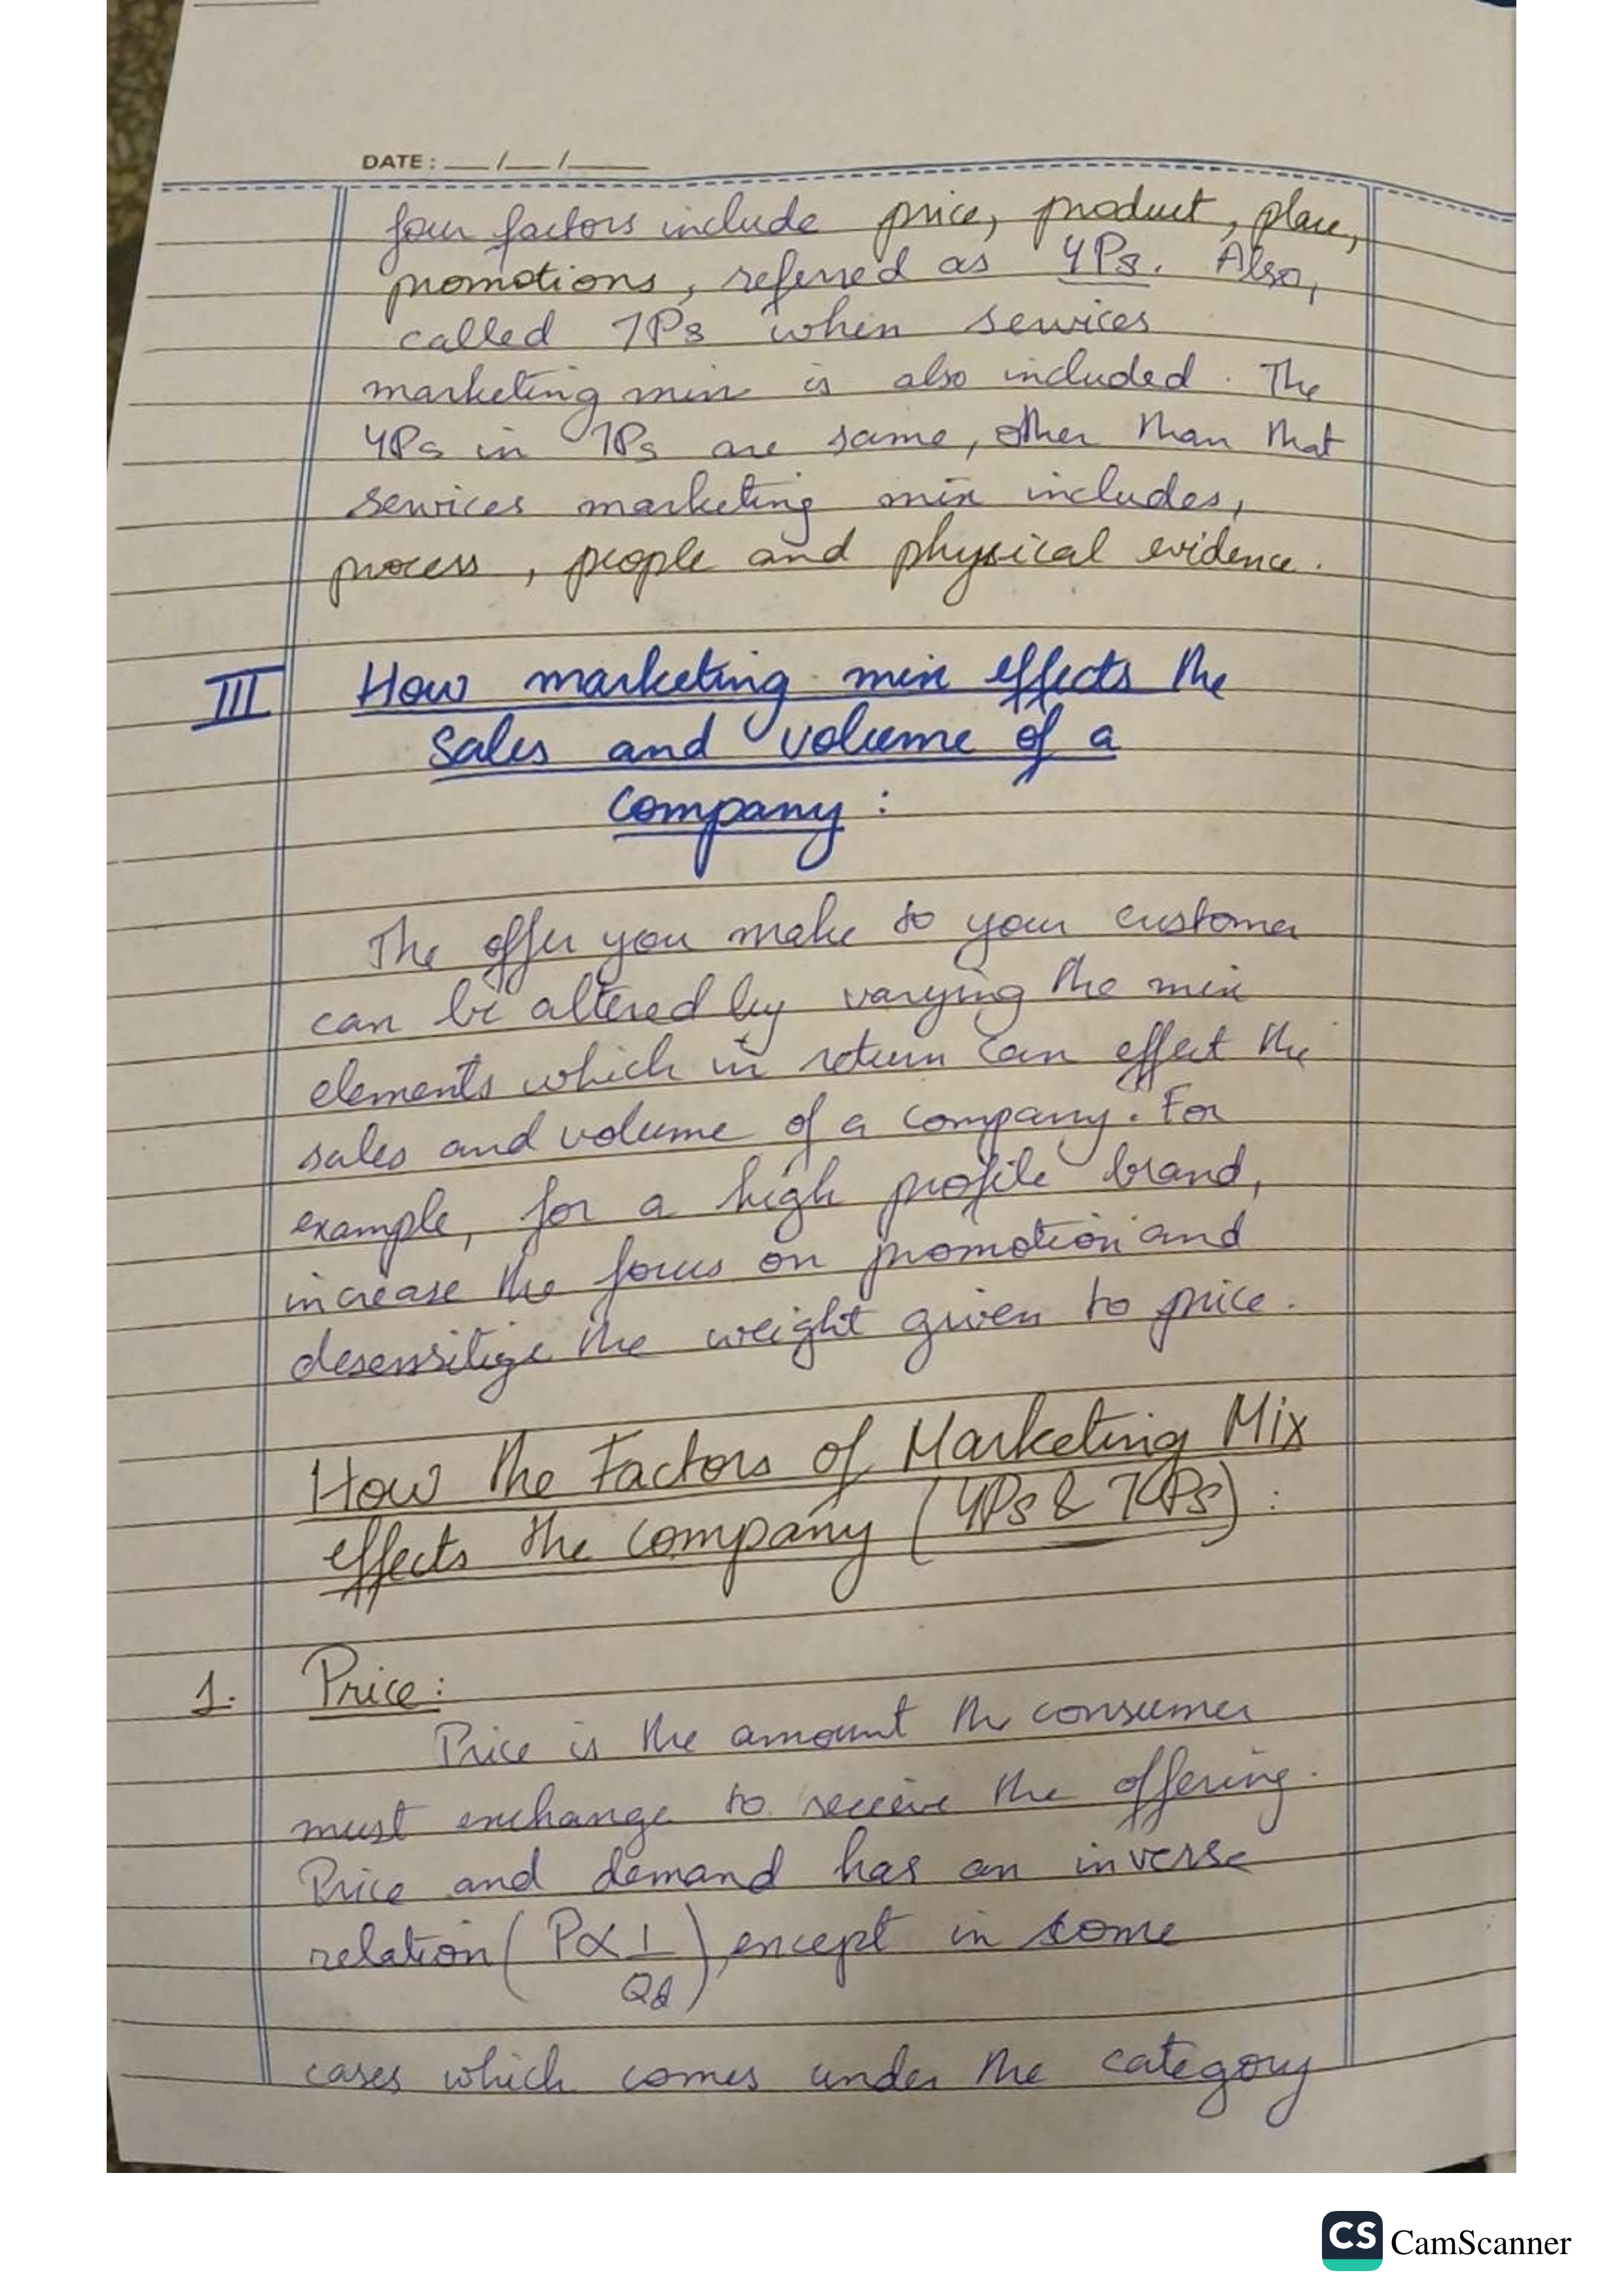 DATE: __/__/____
four factors include price, product, place,
promotions, referred as 4Ps. Also,
called 7Ps when services
marketing mix is also included. The
4Ps in 7Ps are same, other than that
services marketing mix includes,
process, people and physical evidence.
III How marketing mix effects the
sales and volume of a
company:
The offer you make to your customer
can be altered by varying the mix
elements which in return can effect the
sales and volume of a company. For
example, for a high profile brand,
increase the focus on promotion and
desensitize the weight given to price.
How the Factors of Marketing Mix
effects the company (4Ps & 7Ps):
1. Price:
Price is the amount the consumer
must exchange to receive the offering.
Price and demand has an inverse
relation (P∝1/Qd), except in some
cases which comes under the category
CS CamScanner